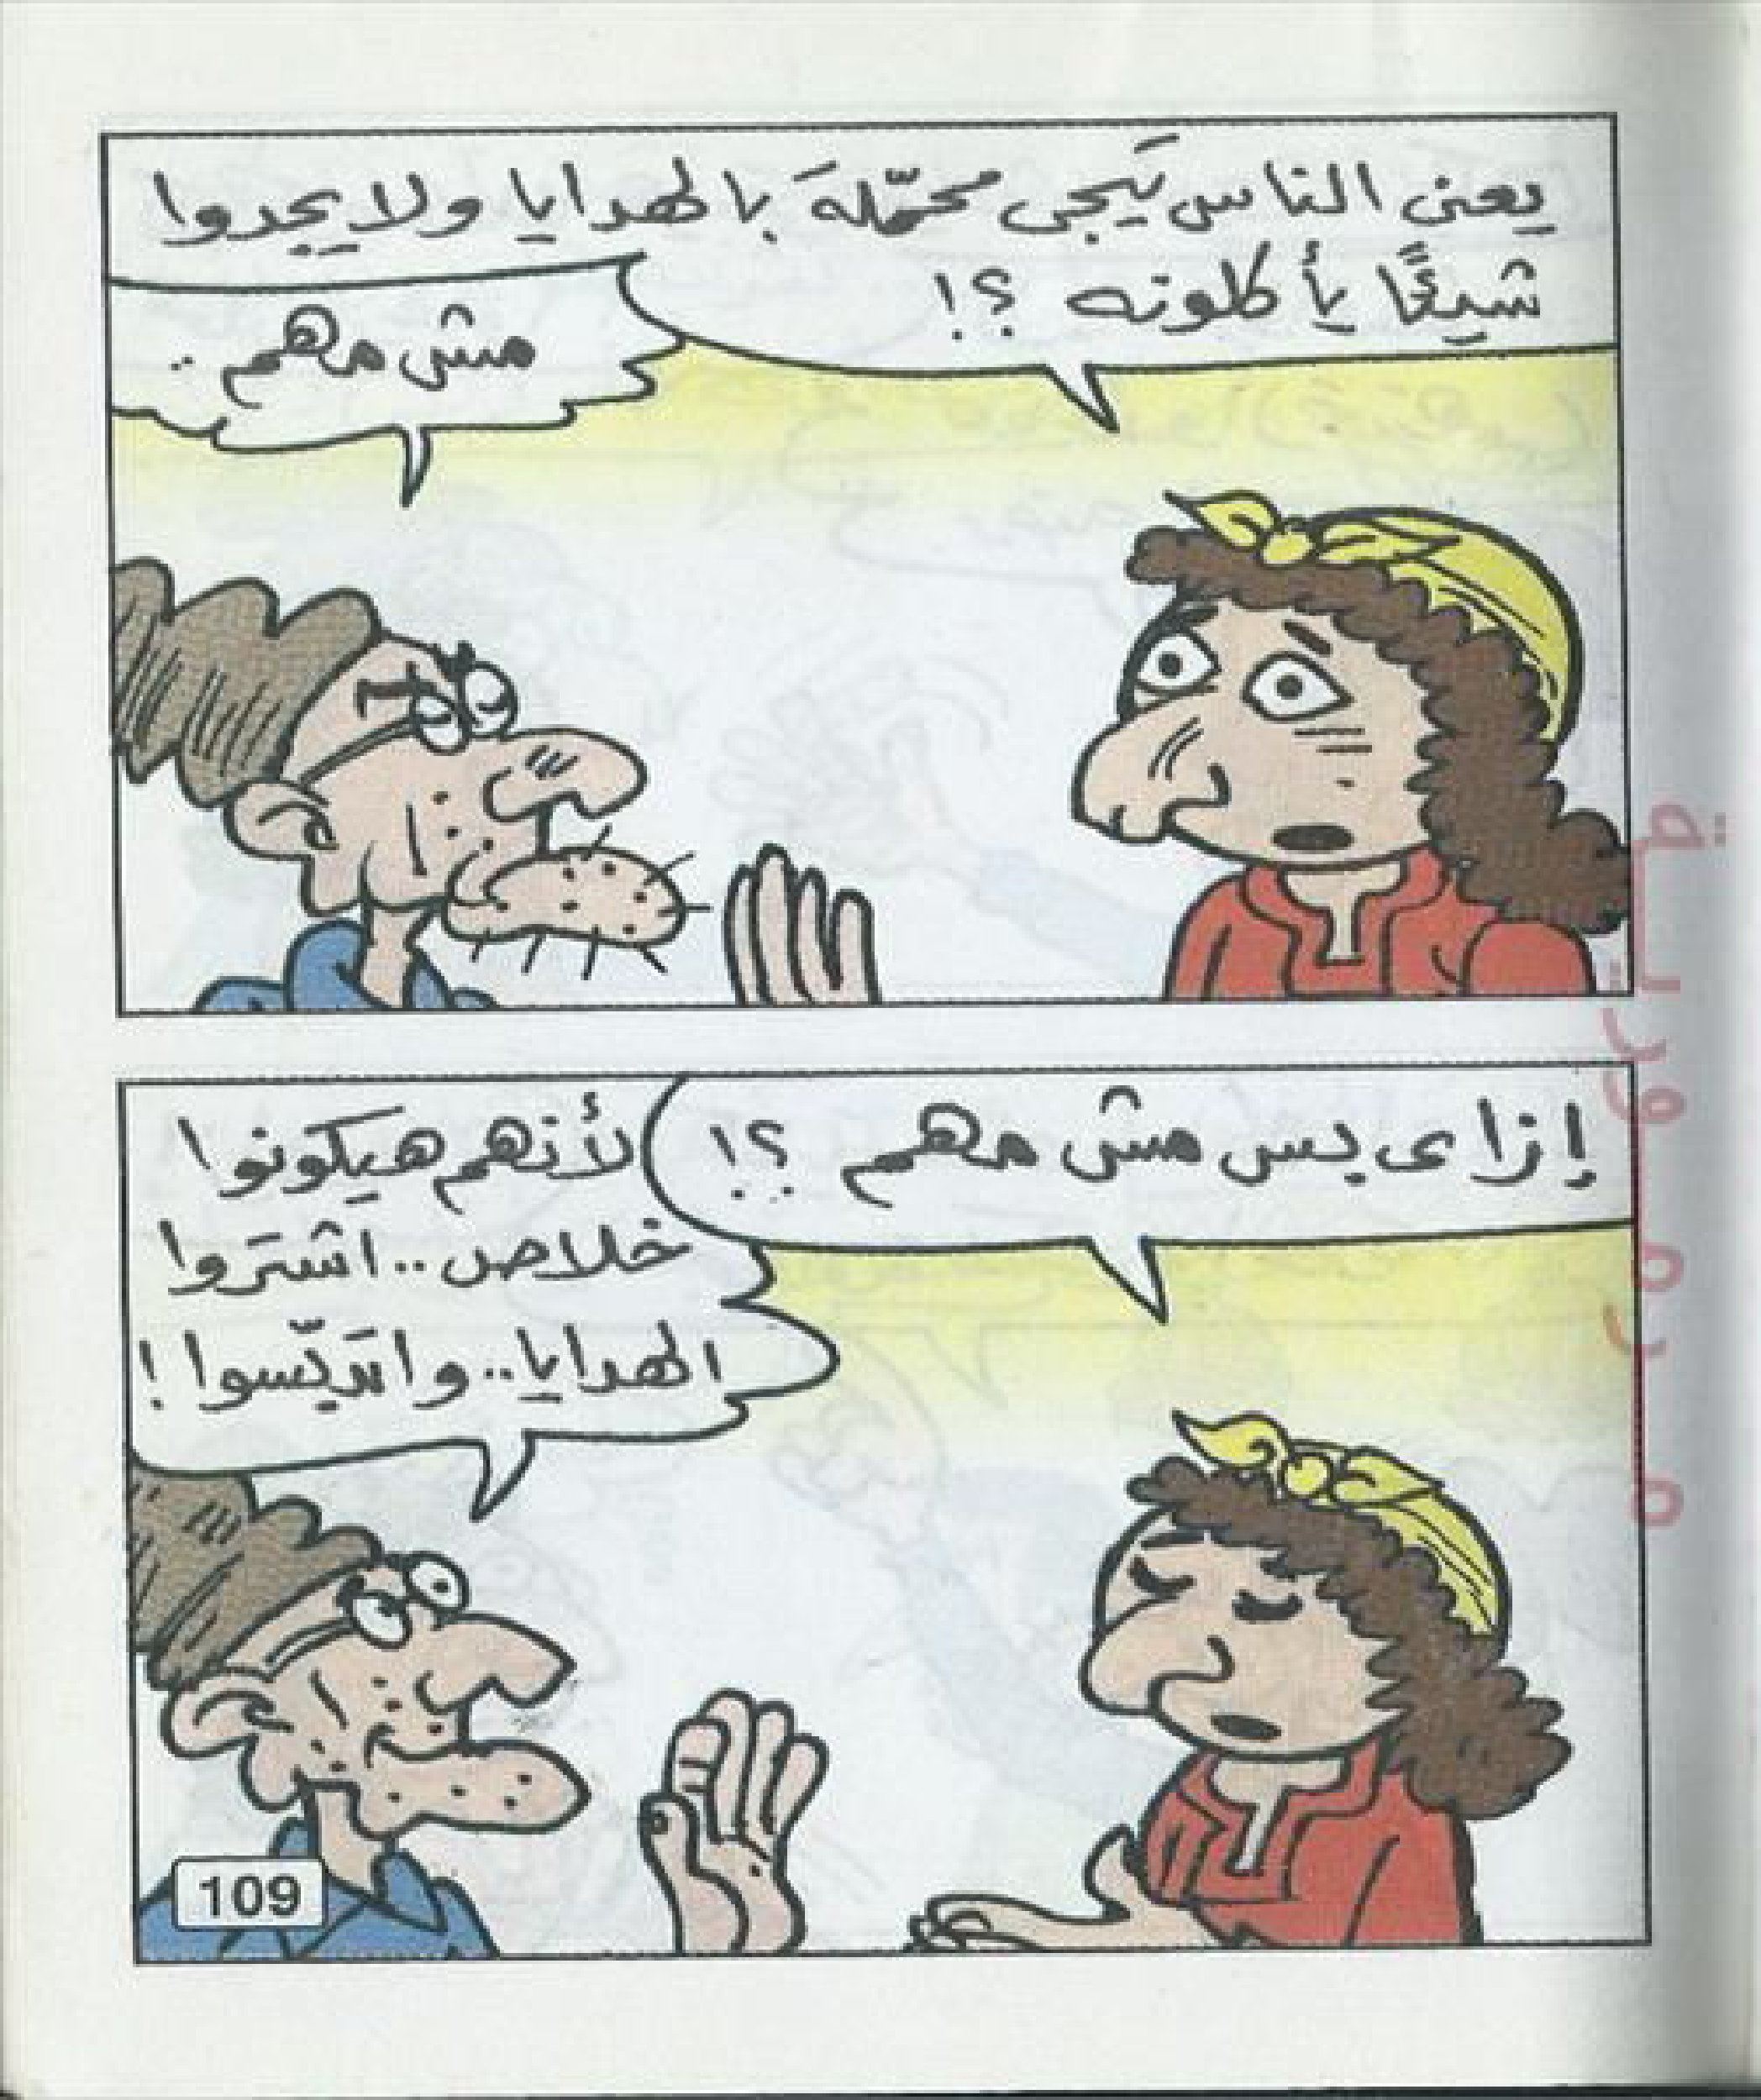 يعنى الناس تَيجى محمّلةَ بالهدايا ولا يجدوا
شيئًا يأكلونه ؟!
مش مهم ..
إزاى بس مش مهم ؟!
لأنهم هيكونوا
خلاص .. اشتَروا
الهدايا .. واتدبّسوا !
109